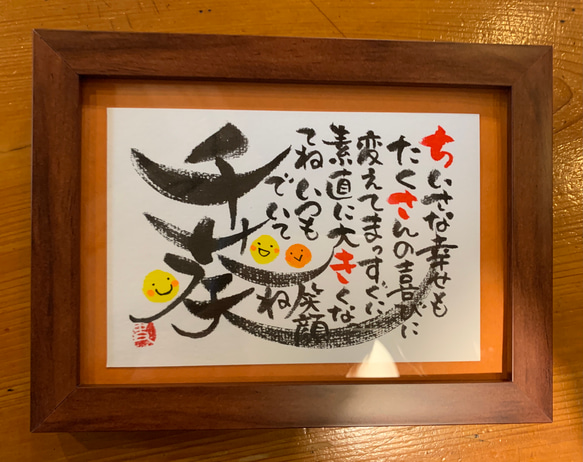 ちいさな幸せも
たくさんの喜びに
変えてまっすぐに
素直に大きくな
てねいつも笑顔
でいてね
千